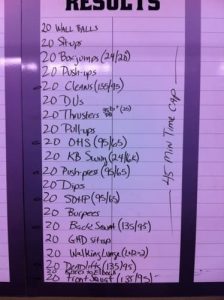 RESULTS
20 WALL BALLS
20 Sit-ups
20 Box jumps (24/20)
20 Push-ups
20 Cleans (135/95)
20 DUs
20 Thrusters
20 Pull-ups
20 OHS (95/65)
20 KB Swing
20 Push-press (95/65)
20 Dips
20 SDHP (95/65)
20 Burpees
20 Back Squat (135/95)
20 GHD sit-up
20 Walking Lunge
20 Deadlifts (135/95)
20 Knees to Elbows
20 Front Squat (135/95)
45 Min Time Cap